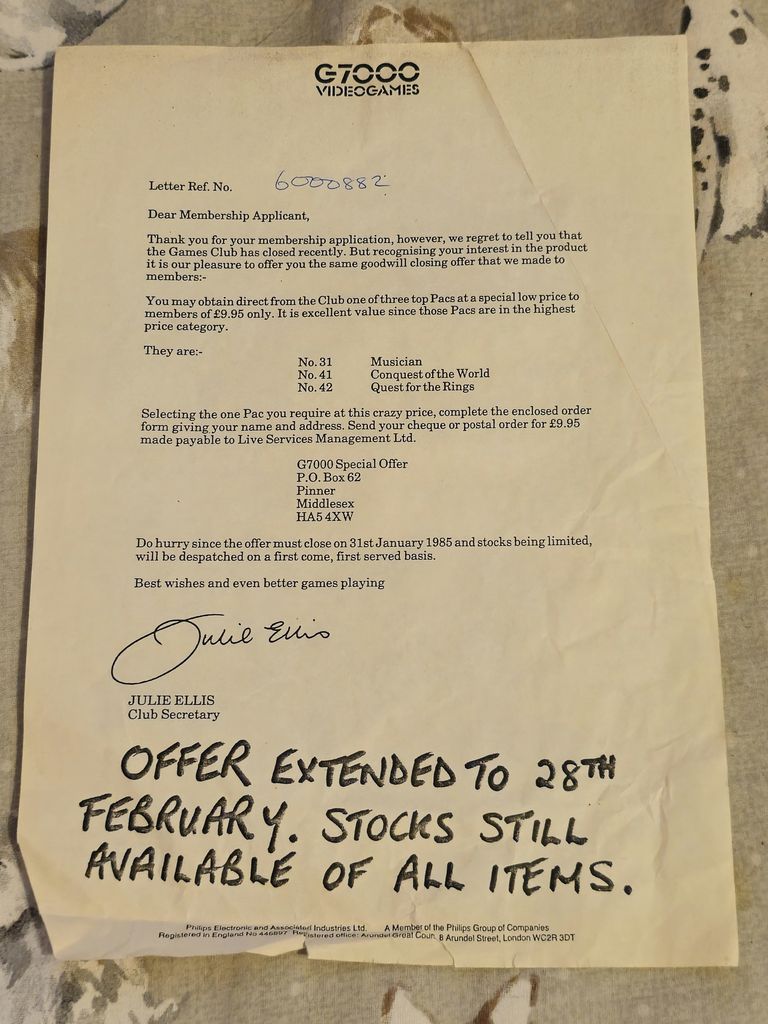 G7000
VIDEOGAMES
Letter Ref. No. 6000882
Dear Membership Applicant,
Thank you for your membership application, however, we regret to tell you that
the Games Club has closed recently. But recognising your interest in the product
it is our pleasure to offer you the same goodwill closing offer that we made to
members:-
You may obtain direct from the Club one of three top Pacs at a special low price to
members of £9.95 only. It is excellent value since those Pacs are in the highest
price category.
They are:-
No. 31 Musician
No. 41 Conquest of the World
No. 42 Quest for the Rings
Selecting the one Pac you require at this crazy price, complete the enclosed order
form giving your name and address. Send your cheque or postal order for £9.95
made payable to Live Services Management Ltd.
G7000 Special Offer
P.O. Box 62
Pinner
Middlesex
HA5 4XW
Do hurry since the offer must close on 31st January 1985 and stocks being limited,
will be despatched on a first come, first served basis.
Best wishes and even better games playing
Julie Ellis
JULIE ELLIS
Club Secretary
OFFER EXTENDED TO 28TH
FEBRUARY. STOCKS STILL
AVAILABLE OF ALL ITEMS.
Philips Electronic and Associated Industries Ltd. A Member of the Philips Group of Companies
Registered in England No 446897 Registered office: Arundel Great Court, 8 Arundel Street, London WC2R 3DT